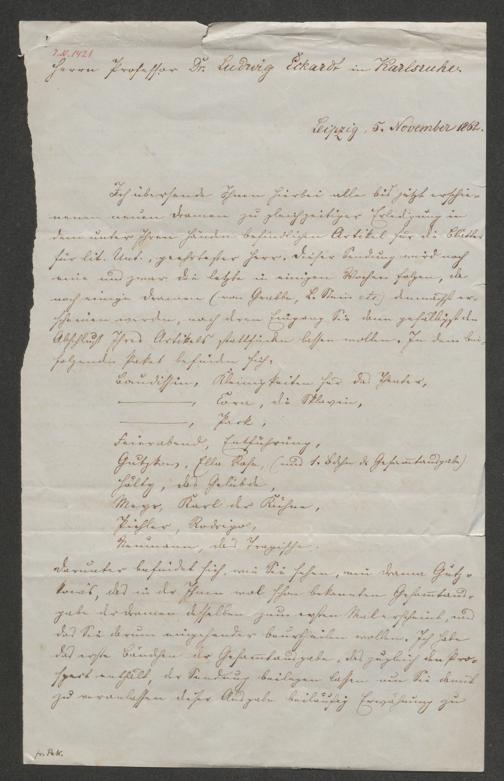 J.N. 1421
Herrn Professor Dr. Ludwig Eckardt in Karlsruhe.
Leipzig, 5. November 1862.
Ich übersende Ihnen hierbei alle bis jetzt erschie-
nenen neuen Dramen zu gleichzeitiger Erledigung in
dem unter Ihren Händen befindlichen Artikel für die Blätter
für lit. Unt., geehrtester Herr. Dieser Sendung wird noch
eine und zwar die letzte in einigen Wochen folgen, da
noch einige Dramen (von Grabbe, L. Stein etc) demnächst er-
scheinen werden, nach deren Eingang Sie dann gefälligst den
Abschluß Ihres Artikels stattfinden lassen wollen. In dem bei-
folgenden Paket befinden sich:
Baudissin, Kleinigkeiten für das Theater,
———, Cora, die Sklavin,
———, Park,
Feierabend, Entführung,
Gutzkow, Ella Rose, (und 1. Bdchn der Gesammtausgabe)
Hölty, das Gelübde,
Meyr, Karl der Kühne,
Pichler, Rodrigo,
Neumann, das Tragische.
Darunter befindet sich, wie Sie sehen, ein Drama Gutz-
kow's, das in der Ihnen wol schon bekannten Gesammtaus-
gabe der Dramen desselben zum ersten Mal erscheint, und
das Sie darum eingehender beurtheilen wollen. Ich habe
das erste Bändchen der Gesammtausgabe, das zugleich den Pro-
spect enthält, der Sendung beilegen lassen um Sie damit
zu veranlassen dieser Ausgabe beiläufig Erwähnung zu